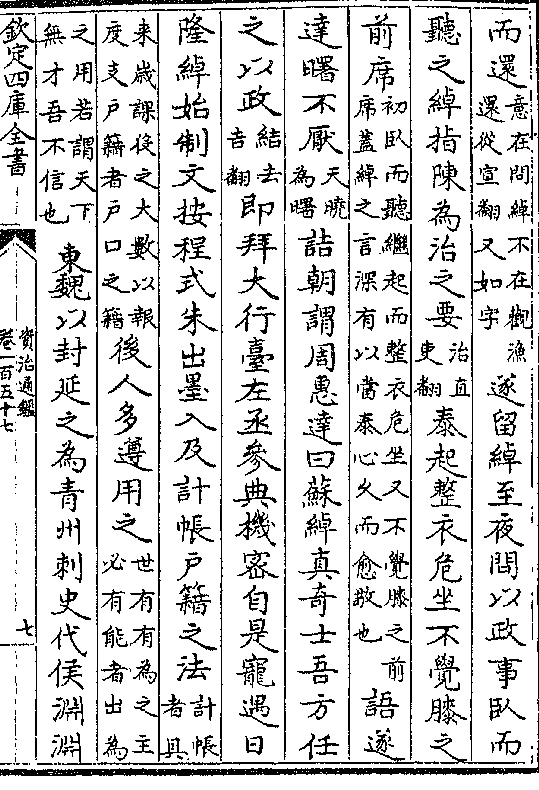 而還意在問綽不在觀漁還從宣翻又如字遂留綽至夜問以政事臥而
聽之綽指陳為治之要治直吏翻泰起整衣危坐不覺膝之
前席初臥而聽繼起而整衣危坐又不覺膝之前席蓋綽之言深有以當泰心久而愈敬也語遂
達曙不厭天曉為曙詰朝謂周惠達曰蘇綽真奇士吾方任
之以政結去吉翻即拜大行臺左丞參典機密自是寵遇日
隆綽始制文按程式朱出墨入及計帳戶籍之法計帳者具
來歲課役之大數以報度支戶籍者戶口之籍後人多遵用之世有有為之主必有能者出為
之用若謂天下無才吾不信也東魏以封延之為青州刺史代侯淵淵
欽定四庫全書
資治通鑑
卷一百五十七
七